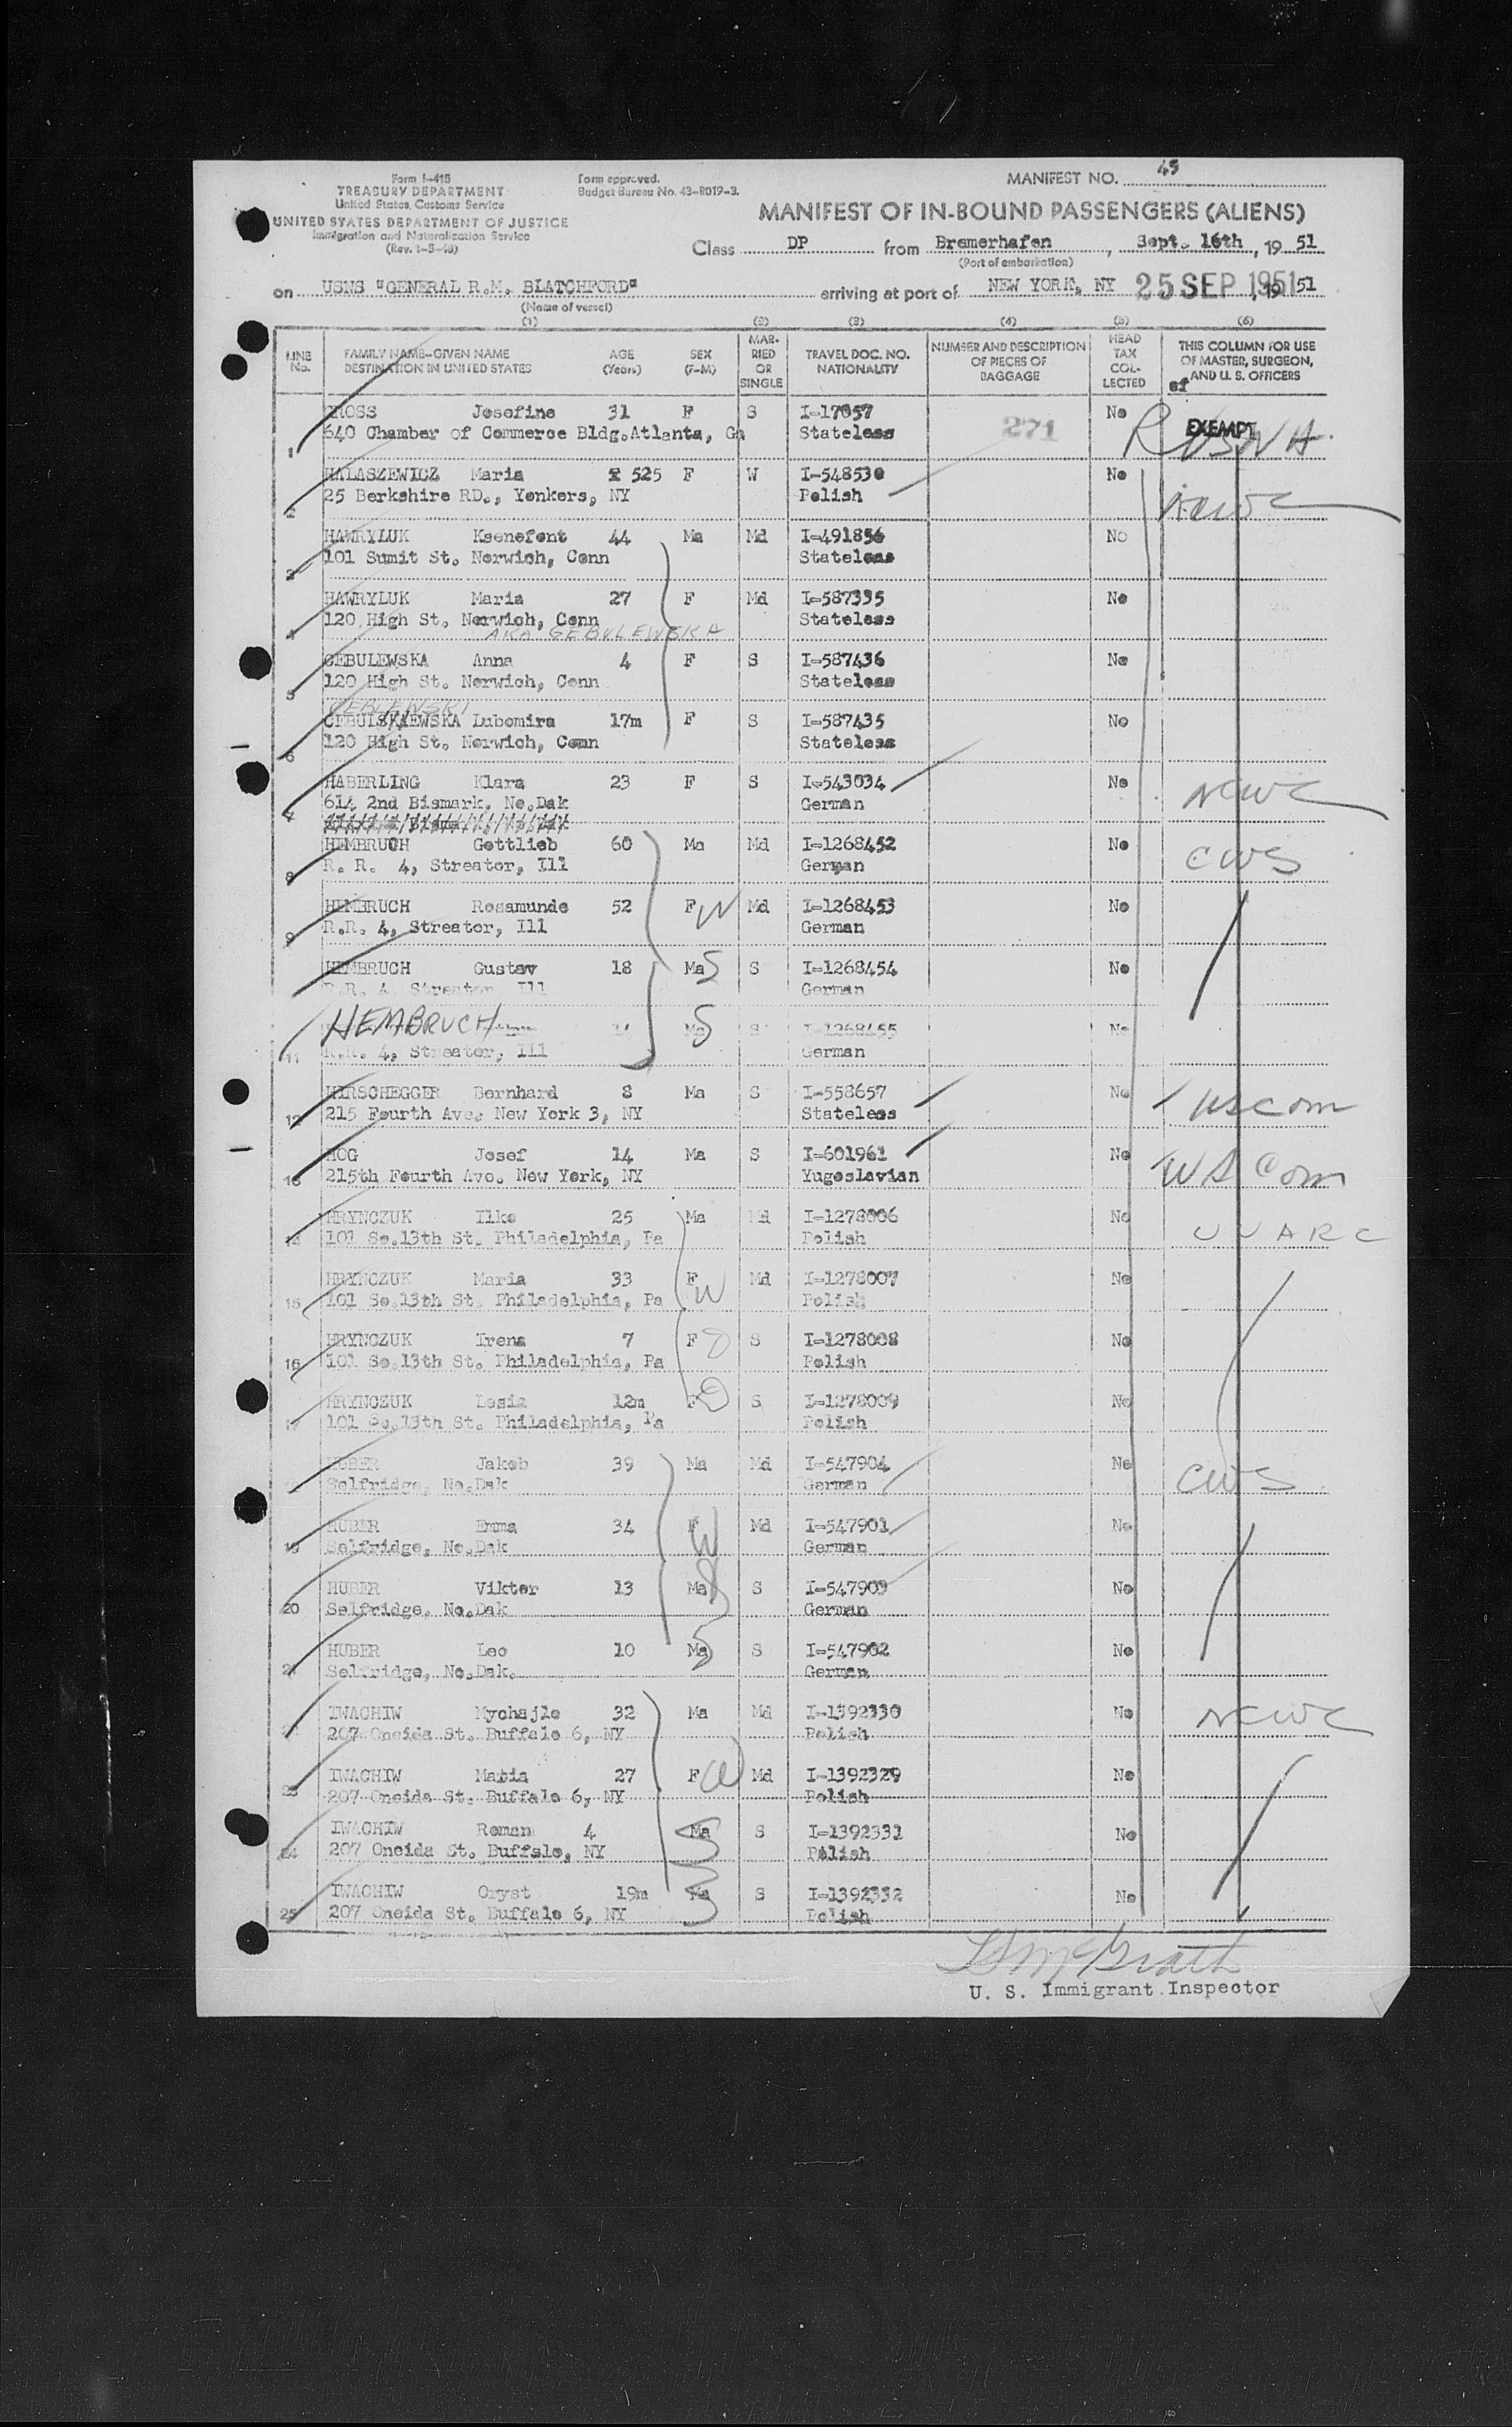 Form I-415
TREASURY DEPARTMENT
United States Customs Service
UNITED STATES DEPARTMENT OF JUSTICE
Immigration and Naturalization Service
(Rev. 1-5-48)
Form approved.
Budget Bureau No. 43-R019-3.
MANIFEST NO. 45
MANIFEST OF IN-BOUND PASSENGERS (ALIENS)
Class DP from Bremerhafen, Sept. 16th, 19 51
(Port of embarkation)
on USNS "GENERAL R.M. BLATCHFORD" arriving at port of NEW YORK, NY 25 SEP 1951, 19 51
(Name of vessel)
(1) (2) (3) (4) (5) (6)
LINE No. FAMILY NAME-GIVEN NAME DESTINATION IN UNITED STATES AGE (Years) SEX (F-M) MARRIED OR SINGLE TRAVEL DOC. NO. NATIONALITY NUMBER AND DESCRIPTION OF PIECES OF BAGGAGE HEAD TAX COLLECTED THIS COLUMN FOR USE OF MASTER, SURGEON, AND U. S. OFFICERS
1 Josefine 31 F S I-17057 271 No EXEMPT
640 Chamber of Commerce Bldg.Atlanta, Ga Stateless
2 HALASZEWICZ Maria 525 F W I-548530 No NCWC
25 Berkshire RD., Yonkers, NY Polish
3 HAWRYLUK Ksenefont 44 Ma Md I-491856 No
101 Sumit St. Norwich, Conn Stateless
4 HAWRYLUK Maria 27 F Md I-587335 No
120 High St. Norwich, Conn Stateless
AKA GEBULEWSKA
5 CEBULEWSKA Anna 4 F S I-587436 No
120 High St. Norwich, Conn Stateless
CEBLEWSKI
6 Lubomira 17m F S I-587435 No
120 High St. Norwich, Conn Stateless
7 HABERLING Klara 23 F S I-543034 No NCWC
614 2nd Bismark. No.Dak German
8 HEMBRUCH Gottlieb 60 Ma Md I-1268452 No CWS
R. R. 4, Streator, Ill German
9 HEMBRUCH Rosamunde 52 F W Md I-1268453 No
R.R. 4, Streator, Ill German
HEMBRUCH Gustav 18 Ma S S I-1268454 No
R.R. 4 Streator Ill German
11 HEMBRUCH Ma S S I-1268455 No
R.R. 4, Streator, Ill German
12 HIRSCHEGGER Bernhard 8 Ma S I-558657 No US Com
215 Fourth Ave. New York 3, NY Stateless
13 HOG Josef 14 Ma S I-601961 No US Com
215th Fourth Ave. New York, NY Yugoslavian
14 HRYNCZUK Ilko 25 Ma Md I-1278006 No UUARC
101 So.13th St. Philadelphia, Pa Polish
15 HRYNCZUK Maria 33 F W Md I-1278007 No
101 So.13th St. Philadelphia, Pa Polish
16 HRYNCZUK Irena 7 F D S I-1278008 No
101 So.13th St. Philadelphia, Pa Polish
17 HRYNCZUK Lesia 12m F D S I-1278009 No
101 So.13th St. Philadelphia, Pa Polish
HUBER Jakob 39 Ma Md I-547904 No CWS
Selfridge, No.Dak German
19 HUBER Emma 34 F W Md I-547901 No
Selfridge, No.Dak German
20 HUBER Viktor 13 Ma S S I-547903 No
Selfridge, No.Dak German
21 HUBER Leo 10 Ma S S I-547902 No
Selfridge, No.Dak. German
IWACHIW Mychajlo 32 Ma Md I-1392330 No NCWC
207 Oneida St. Buffalo 6, NY Polish
23 IWACHIW Maria 27 F W Md I-1392329 No
207 Oneida St. Buffalo 6, NY Polish
24 IWACHIW Roman 4 Ma S S I-1392331 No
207 Oneida St. Buffalo, NY Polish
25 IWACHIW Oryst 19m Ma S S I-1392332 No
207 Oneida St. Buffalo 6, NY Polish
McGrath
U. S. Immigrant Inspector